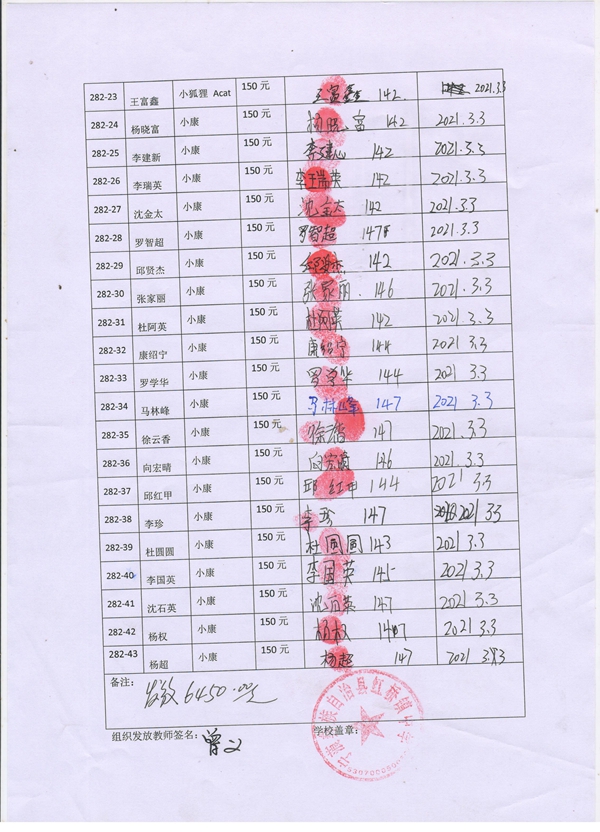 282-23 王富鑫 小狐狸 Acat 150 元 王富鑫 142. 2021.3.3
282-24 杨晓富 小康 150 元 杨晓富 142 2021.3.3
282-25 李建新 小康 150 元 李建 142 2021.3.3
282-26 李瑞英 小康 150 元 李瑞英 142 2021.3.3
282-27 沈金太 小康 150 元 沈金太 142 2021.3.3
282-28 罗智超 小康 150 元 罗智超 147 2021.3.3
282-29 邱贤杰 小康 150 元 邱贤杰 142 2021.3.3
282-30 张家丽 小康 150 元 张家丽. 146 2021.3.3
282-31 杜阿英 小康 150 元 杜阿英 142 2021.3.3
282-32 康绍宁 小康 150 元 康绍宁 144 2021.3.3
282-33 罗学华 小康 150 元 罗学华 144 2021.3.3
282-34 马林峰 小康 150 元 马林峰 147 2021 3.3
282-35 徐云香 小康 150 元 徐云香 147 2021.3.3
282-36 向宏晴 小康 150 元 向宏晴 146 2021.3.3
282-37 邱红甲 小康 150 元 邱红甲 144 2021 3.3
282-38 李珍 小康 150 元 李珍 147 2021 3.3
282-39 杜圆圆 小康 150 元 杜圆圆 143 2021.3.3
282-40 李国英 小康 150 元 李国英 145 2021.3.3
282-41 沈石英 小康 150 元 沈石英 147 2021.3.3
282-42 杨权 小康 150 元 杨权 147 2021.3.3
282-43 杨超 小康 150 元 杨超 147 2021 3.3
备注：
发放6450.00元
组织发放教师签名： 曾文 学校盖章：
族自治县红桥镇中学